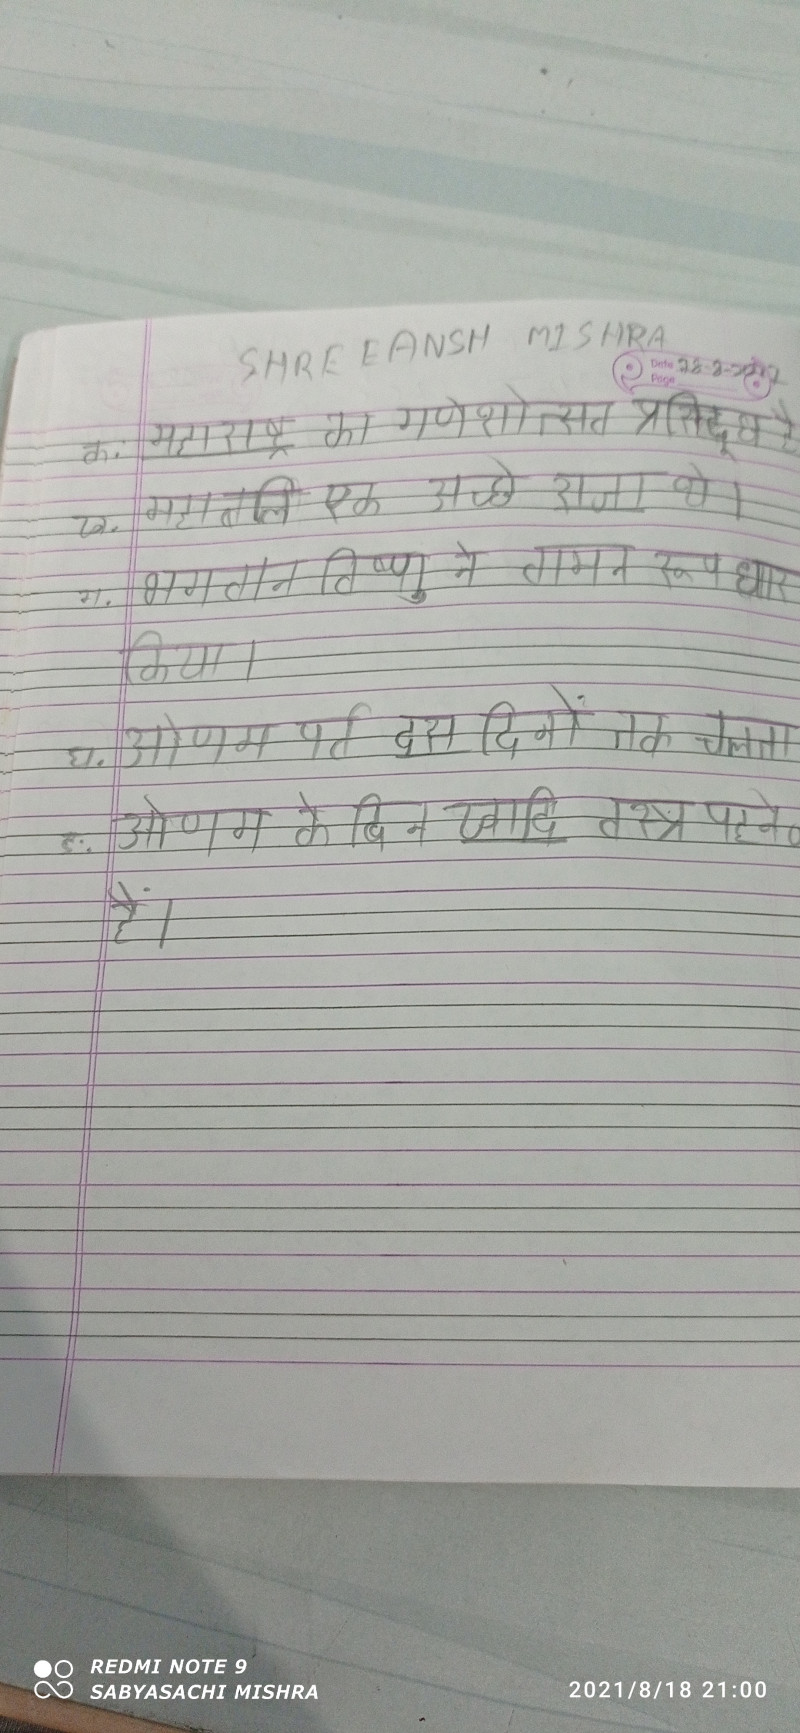 SHREEANSH MISHRA
Date
Page
क. महाराष्ट्र का गणेशोत्सव प्रसिद्ध है
ख. महाबलि एक अच्छे राजा थे।
ग. भगवान विष्णु ने वामन रूप धार
किया।
घ. ओणम पर्व दस दिनों तक चलता
ङ. ओणम के दिन खादि वस्त्र पहने
हैं।
REDMI NOTE 9
SABYASACHI MISHRA
2021/8/18 21:00